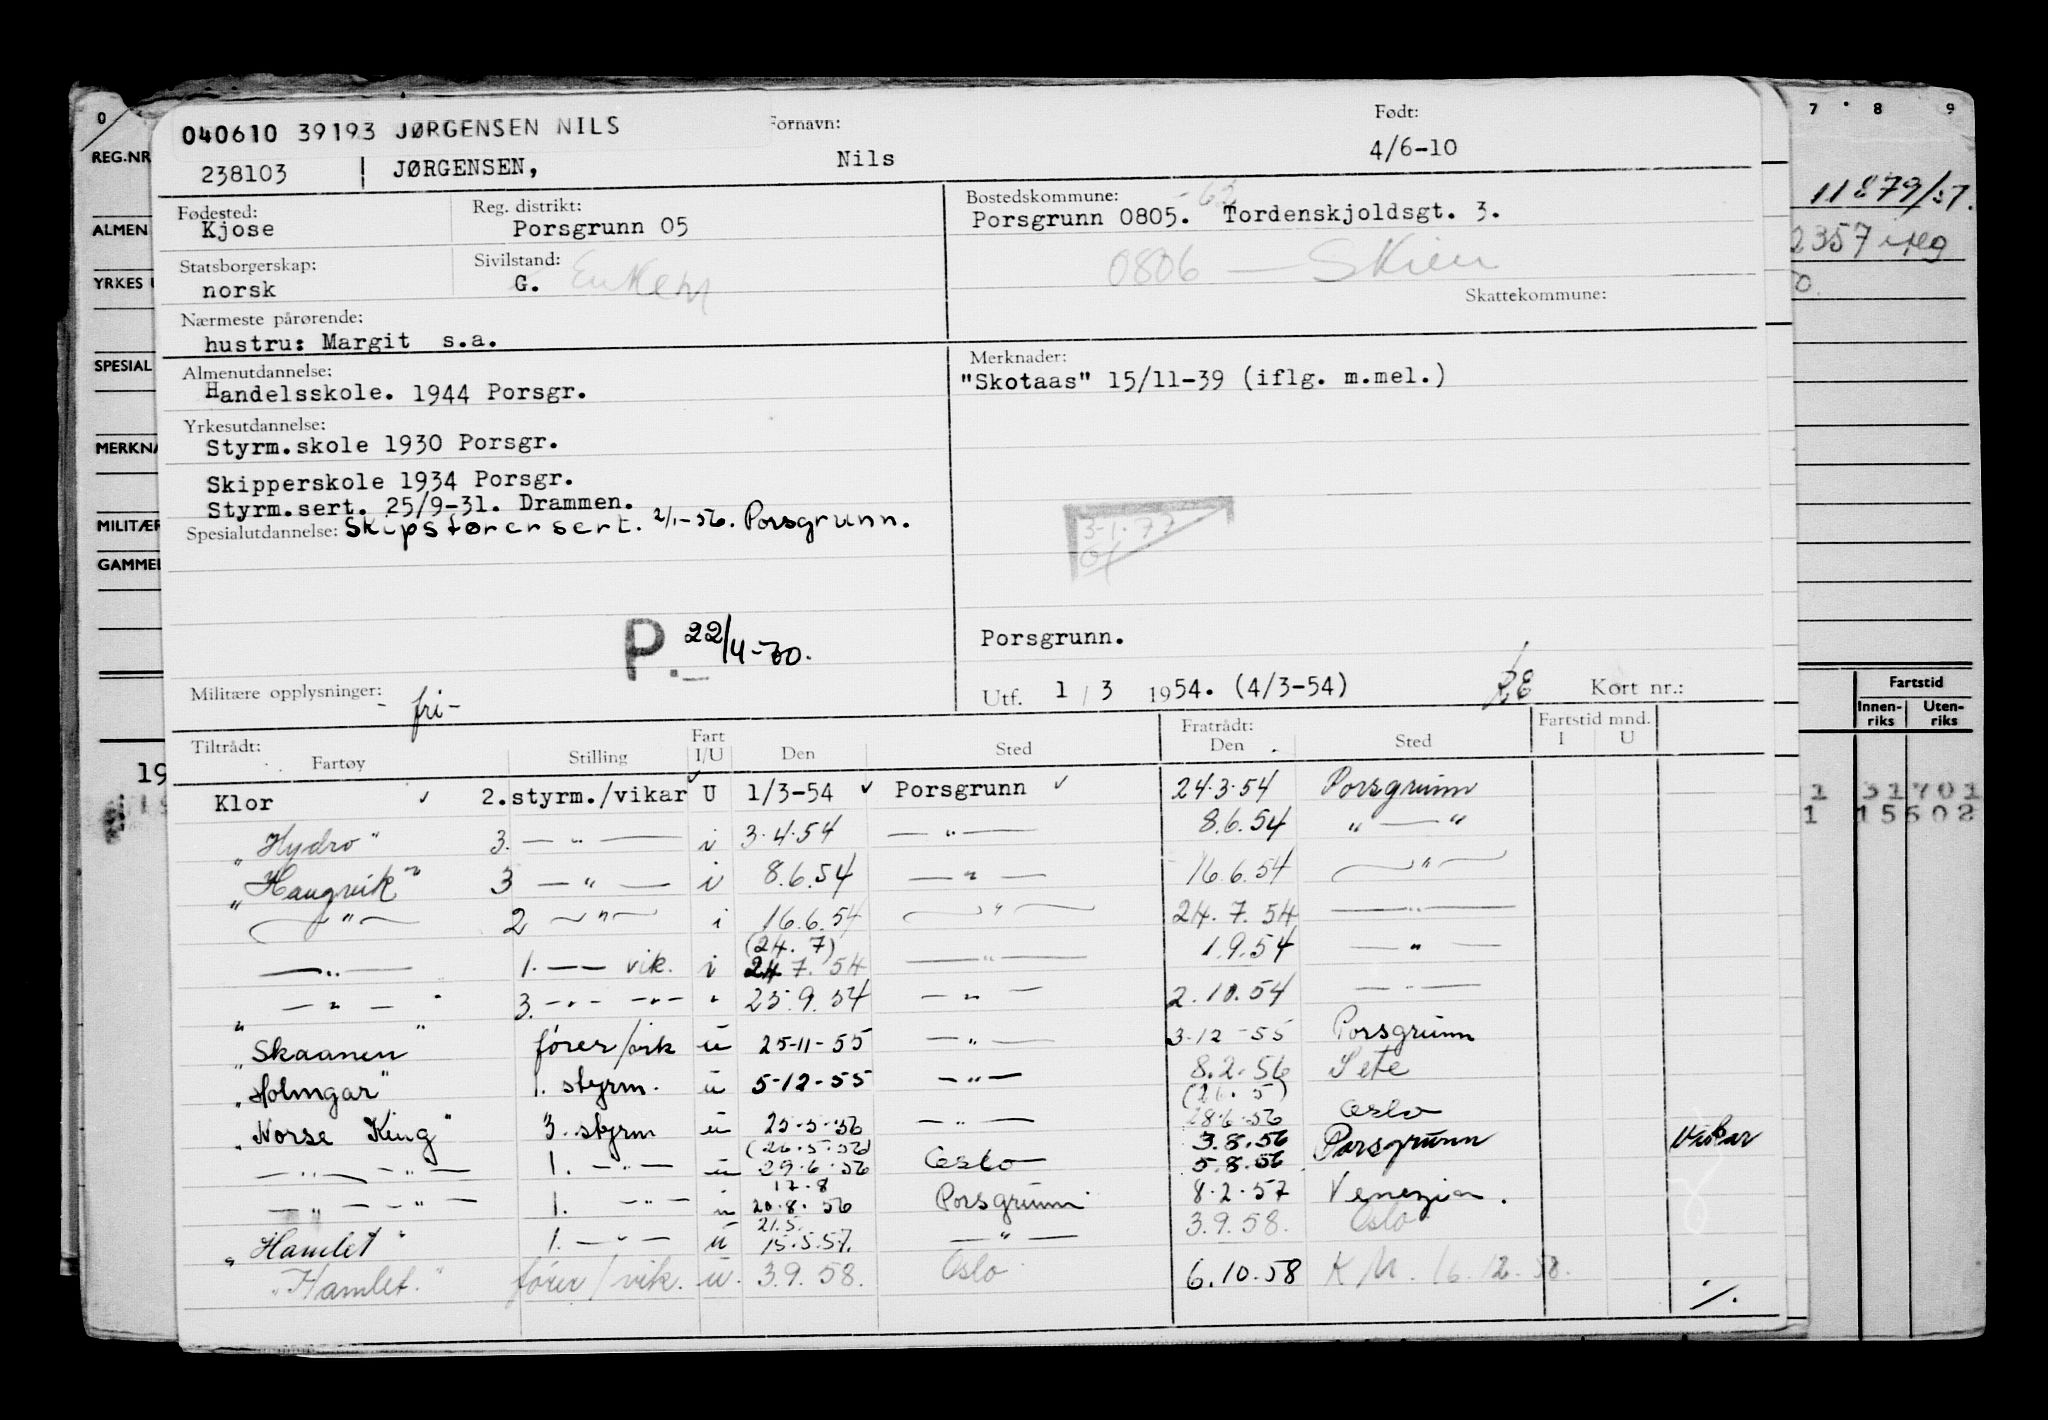 040610 39193 JØRGENSEN NILS
Fornavn:
Født:
238103 JØRGENSEN, Nils 4/6-10
Fødested: Kjose
Reg. distrikt: Porsgrunn 05
Bostedskommune: -62
Porsgrunn 0805. Tordenskjoldsgt. 3.
0806 — Skien
Statsborgerskap: norsk
Sivilstand: G. Enkem
Skattekommune:
Nærmeste pårørende:
hustru: Margit s.a.
Almenutdannelse:
Handelsskole. 1944 Porsgr.
Merknader:
"Skotaas" 15/11-39 (iflg. m.mel.)
Yrkesutdannelse:
Styrm.skole 1930 Porsgr.
Skipperskole 1934 Porsgr.
Styrm.sert. 25/9-31. Drammen.
Spesialutdannelse: Skipsførersert. 2/1-56. Porsgrunn.
3-1.77
P. 22/4-70.
Porsgrunn.
Militære opplysninger: -fri-
Utf. 1 / 3 1954. (4/3-54) Kort nr.:
Tiltrådt: Fartøy Stilling Fart I/U Den Sted Fratrådt: Den Sted Fartstid mnd. I U
Klor 2.styrm./vikar U 1/3-54 Porsgrunn 24.3.54 Porsgrunn
"Hydro" 3. — " — i 3.4.54 — " — 8.6.54 " — "
"Haugvik" 3 — " — i 8.6.54 — " — 16.6.54 — " —
— " — 2 — " — i 16.6.54 — " — 24.7.54 — " —
(24.7)
— " — 1. — — vik. i 24.7.54 — " — 1.9.54 — " —
— " — 3. — " — — " — " 25.9.54 — " — 2.10.54 — " —
"Skaanen" fører/vik u 25-11-55 — " — 3-12-55 Porsgrunn
"Holmgar" 1. styrm. u 5-12-55 — " — 8.2.56 Sete
(26.5)
"Norse King" 3. styrm u 25-5-56 — " — 28.6.56 Oslo
(26.5.56) 3.8.56
— " — " — 1. — " — u 29.6.56 Oslo 5.8.56 Porsgrunn Vikar
17.8
— " — — " — 1. — " — u 20.8.56 Porsgrunn 8.2.57 Venezia.
21.5.
"Hamlet" 1. — " — u 15.5.57. — " — 3.9.58. Oslo
"Hamlet." fører/vik. u. 3.9.58. Oslo 6.10.58 KM. 16.12.58.
./.
0 7 8 9
REG.NR
11879/57.
ALMEN
2357
YRKES U
SPESIAL
MERKNA
MILITÆR
GAMMEL
Fartstid
Innen-riks Uten-riks
19
1 31701
1 15602